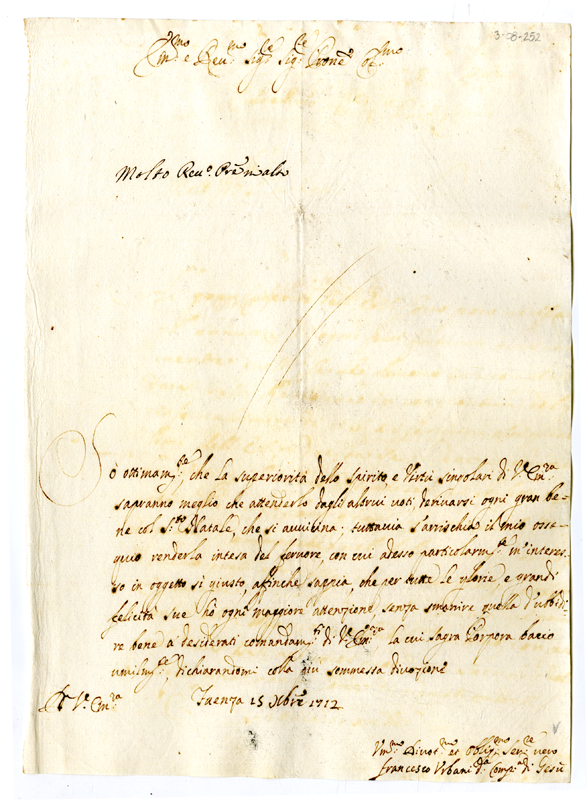 3-08-252
Em.mo e Reu.mo Sig.re Sig.re Prone Col.mo
Molto Reu.o Pre in alto
Sò ottimam.te che la superiorità dello spirito, e virtù singolari di V.a Em.za
sapranno meglio che attenderlo dagli altrui voti, derivarsi ogni gran be-
ne col S.to Natale, che si auuicina; tuttavia s'arrischia il mio osse-
quio renderla intesa del feruore, con cui adesso particolarm.te m'interes-
so in oggetto sì giusto, affinche sappia, che per tutte le glorie e grandi
felicità sue hò ogni maggiore attenzione, senza smarire quella d'ubbidi-
re bene a desiderati comandam.ti di V.a Em.za la cui sagra Porpora bacio
umilm.te, dichiarandomi colla più sommessa diuozione
Di V.a Em.za
Faenza 15 Xbre 1712
Vm.mo Diuot.mo et Oblig.mo Ser.re uero
Francesco Vrbani d.a Comp.a di Gesù